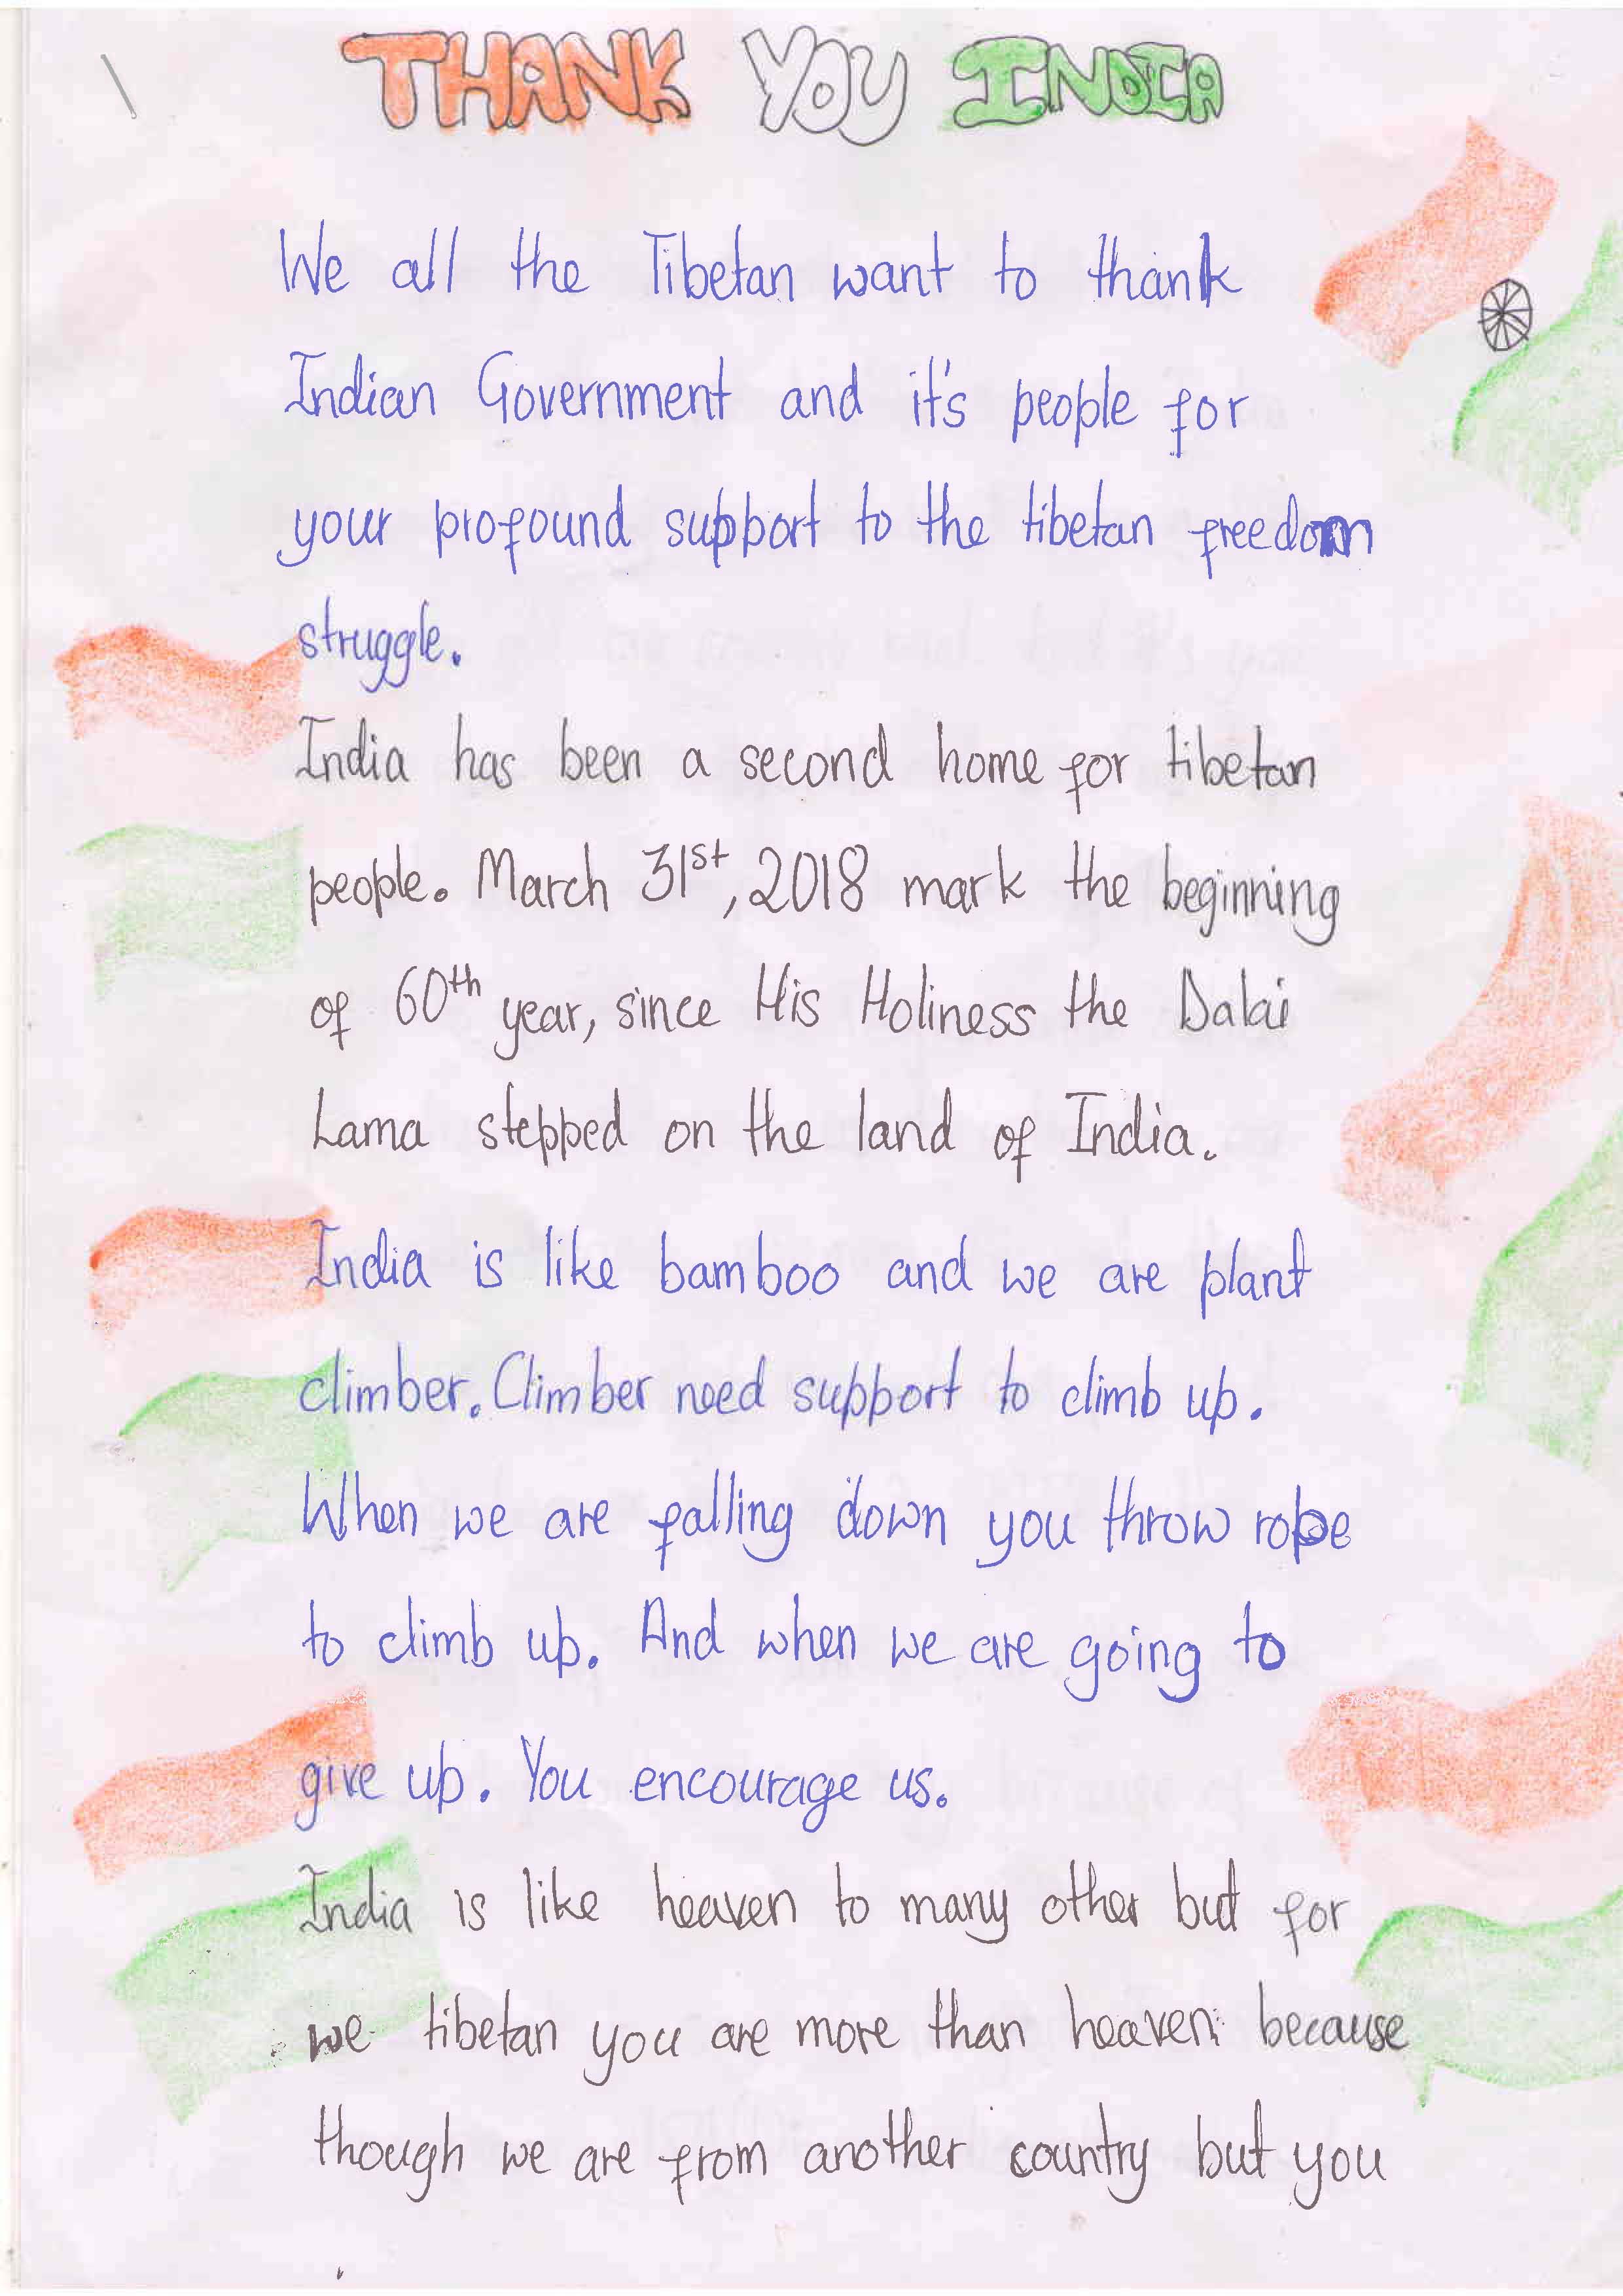 THANK YOU INDIA
We all the Tibetan want to thank
Indian Government and it's people for
your profound support to the tibetan freedom
struggle.
India has been a second home for tibetan
people. March 31st, 2018 mark the beginning
of 60th year, since His Holiness the Dalai
Lama stepped on the land of India.
India is like bamboo and we are plant
climber. Climber need support to climb up.
When we are falling down you throw rope
to climb up. And when we are going to
give up. You encourage us.
India is like heaven to many other but for
we tibetan you are more than heaven because
though we are from another country but you